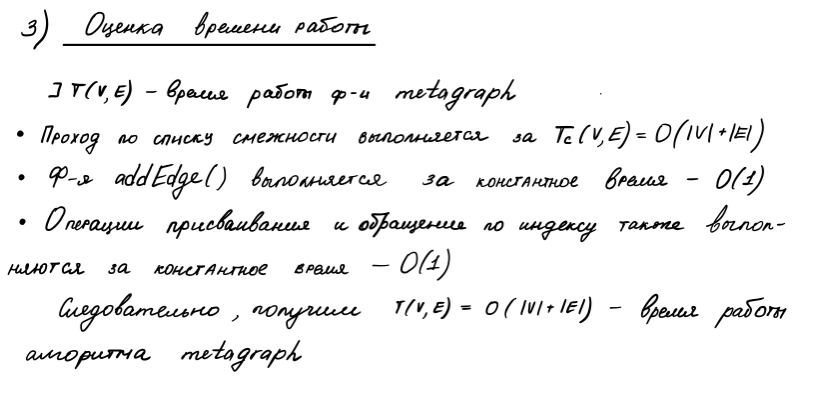 3) Оценка времени работы
] T(V,E) – время работы ф-и metagraph
• Проход по списку смежности выполняется за Tc(V,E) = O(|V|+|E|)
• Ф-я addEdge() выполняется за константное время – O(1)
• Операции присваивания и обращение по индексу также выпол-
няются за константное время – O(1)
Следовательно, получим T(V,E) = O(|V|+|E|) – время работы
алгоритма metagraph